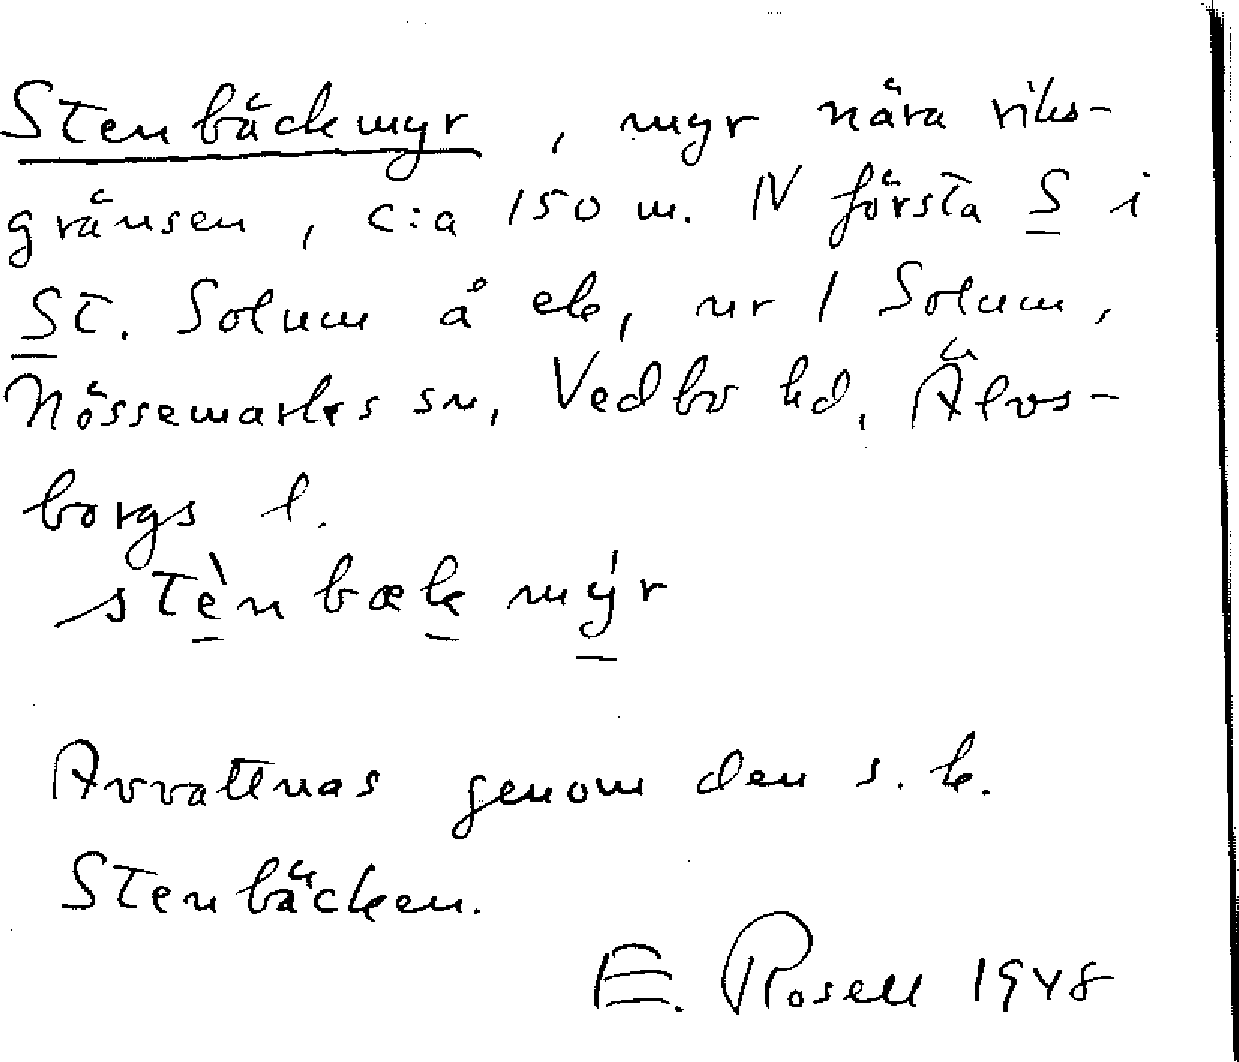 Stenbäckmyr, myr nära riks-
gränsen, c:a 150 m. N första S i
St. Solum å ek, nr 1 Solum,
Nössemarks sn, Vedbo hd, Älvs-
borgs l.
stèn bæk mýr
Avvattnas genom den s. k.
Stenbäcken.
E. Rosell 1948